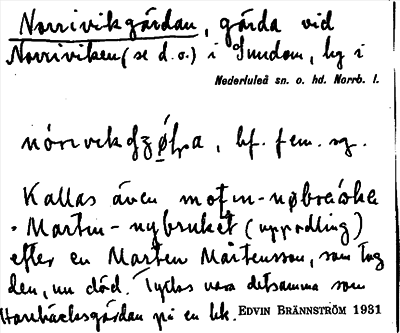 Norrivikgärdan, gärda vid
Norriviken (se d.o.) i Sundom, by i
Nederluleå sn. o. hd. Norrb. l.
bf. fem. sg.
Kallas även
= Martin-nybruket (uppodling)
efter en Marten Mårtensson, som tog
den, nu död. Tyckes vara detsamma som
Hornbäcksgärdan på en lk. EDVIN BRÄNNSTRÖM 1931